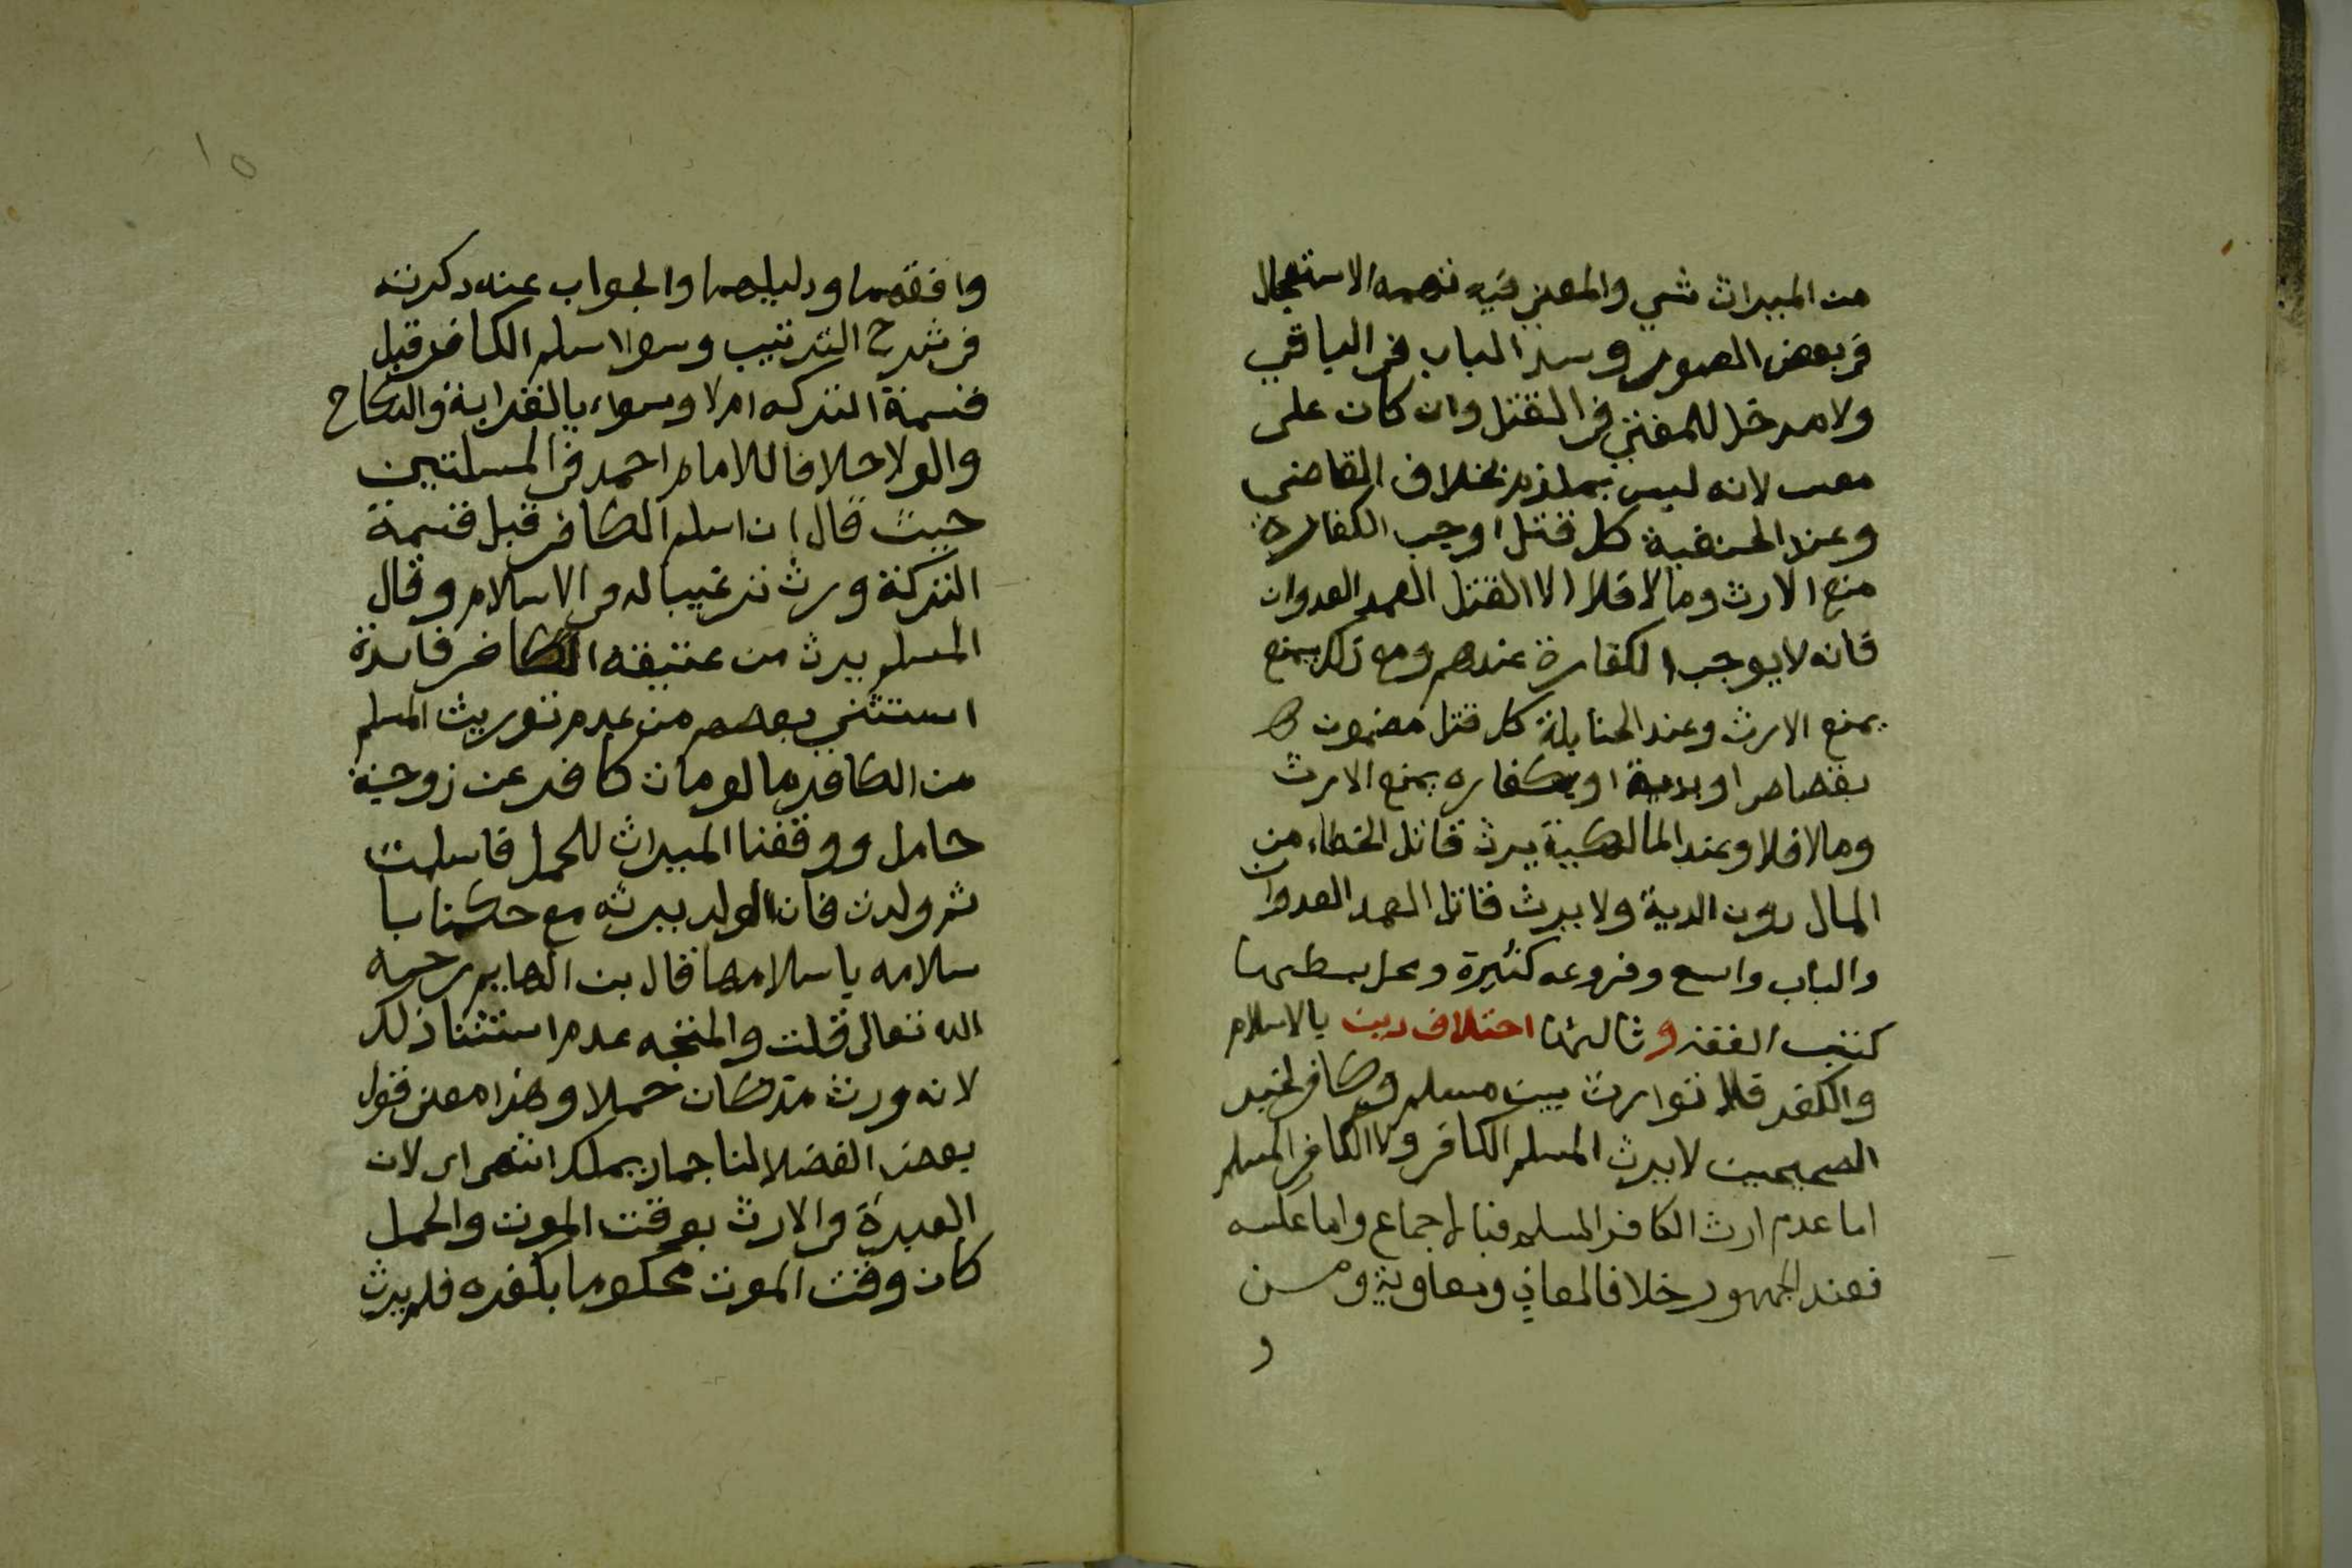 من الميراث شي والمعنى فيه تهمه الاستعجال
في بعض الصور وسد الباب في الباقي
ولا مدخل للمفتي في القتل وان كان على
معين لانه ليس بملزم بخلاف القاضي
وعند الحنفية كل قتل اوجب الكفارة
منع الارث ومالا فلا الا القتل العمد العدوان
فانه لا يوجب الكفارة عندهم ومع ذلك يمنع
يمنع الارث وعند الحنابلة كل قتل مضمون
بقصاص او بدية او بكفاره يمنع الارث
ومالا فلا وعند المالكية يرث قاتل الخطاء من
المال دون الدية ولا يرث قاتل العمد العدوان
والباب واسع وفروعه كثيرة ومحل بسطها
كتب الفقه وثالثها اختلاف دين بالاسلام
والكفر فلا توارث بين مسلم وكافر لخبر
الصحيحين لا يرث المسلم الكافر ولا الكافر المسلم
اما عدم ارث الكافر المسلم فبالاجماع واما عكسه
فعند الجمهور خلافا لمعاذ ومعاوية ومن
و
١٥
وافقهما ودليلهما والجواب عنه ذكرته
في شرح الترتيب وسوا اسلم الكافر قبل
قسمة التركه ام لا وسواء بالقرابة والنكاح
والولا خلافا للامام احمد في المسلتين
حيث قال ان اسلم الكافر قبل قسمة
التركة ورث ترغيبا له في الاسلام وقال
المسلم يرث من عتيقه الكافر فايدة
استثنى بعضهم من عدم توريث المسلم
من الكافر ما لو مات كافر عن زوجة
حامل ووقفنا الميراث للحمل فاسلمت
ثم ولدت فان الولد يرثه مع حكمنا با
سلامه باسلامها قال بن الهايم رحمه
الله تعالى قلت والمتجه عدم استثنا ذلك
لانه ورث مذ كان حملا وهذا معنى قول
بعض الفضلا لنا جماد يملك انتهى اى لان
العبرة في الارث بوقت الموت والحمل
كان وقت الموت محكوما بكفره فلم يرث